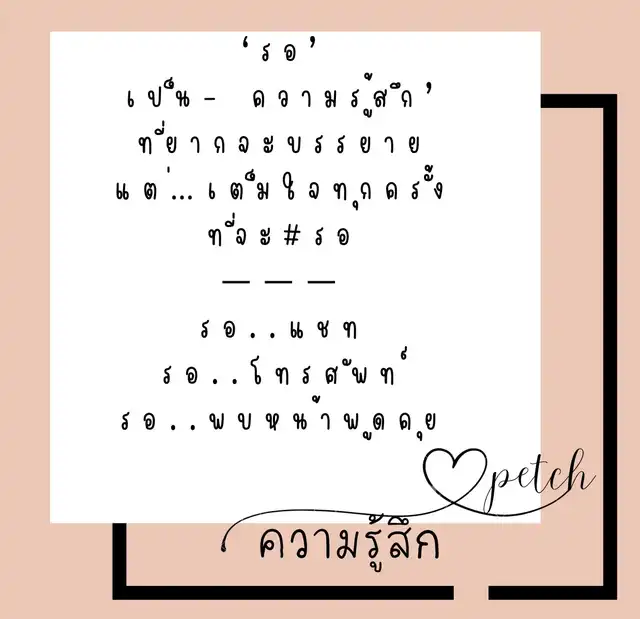 ‘รอ’
เป็น- ความรู้สึก’
ที่ยากจะบรรยาย
แต่...เต็มใจทุกครั้ง
ที่จะ#รอ
———
รอ..แชท
รอ..โทรศัพท์
รอ..พบหน้าพูดคุย
petch
ความรู้สึก